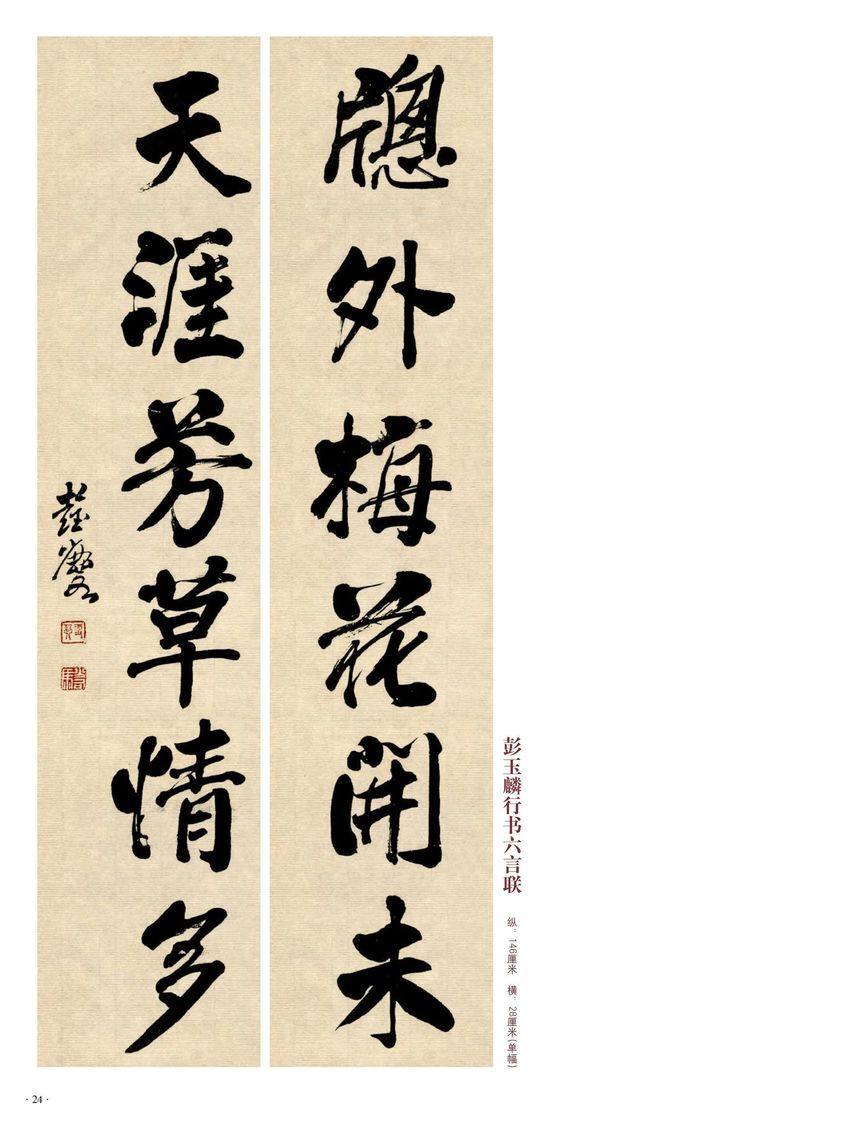 牕外梅花開未
天涯芳草情多
彭玉麐
彭玉麟行书六言联
纵：146厘米 横：28厘米(单幅)
·24·